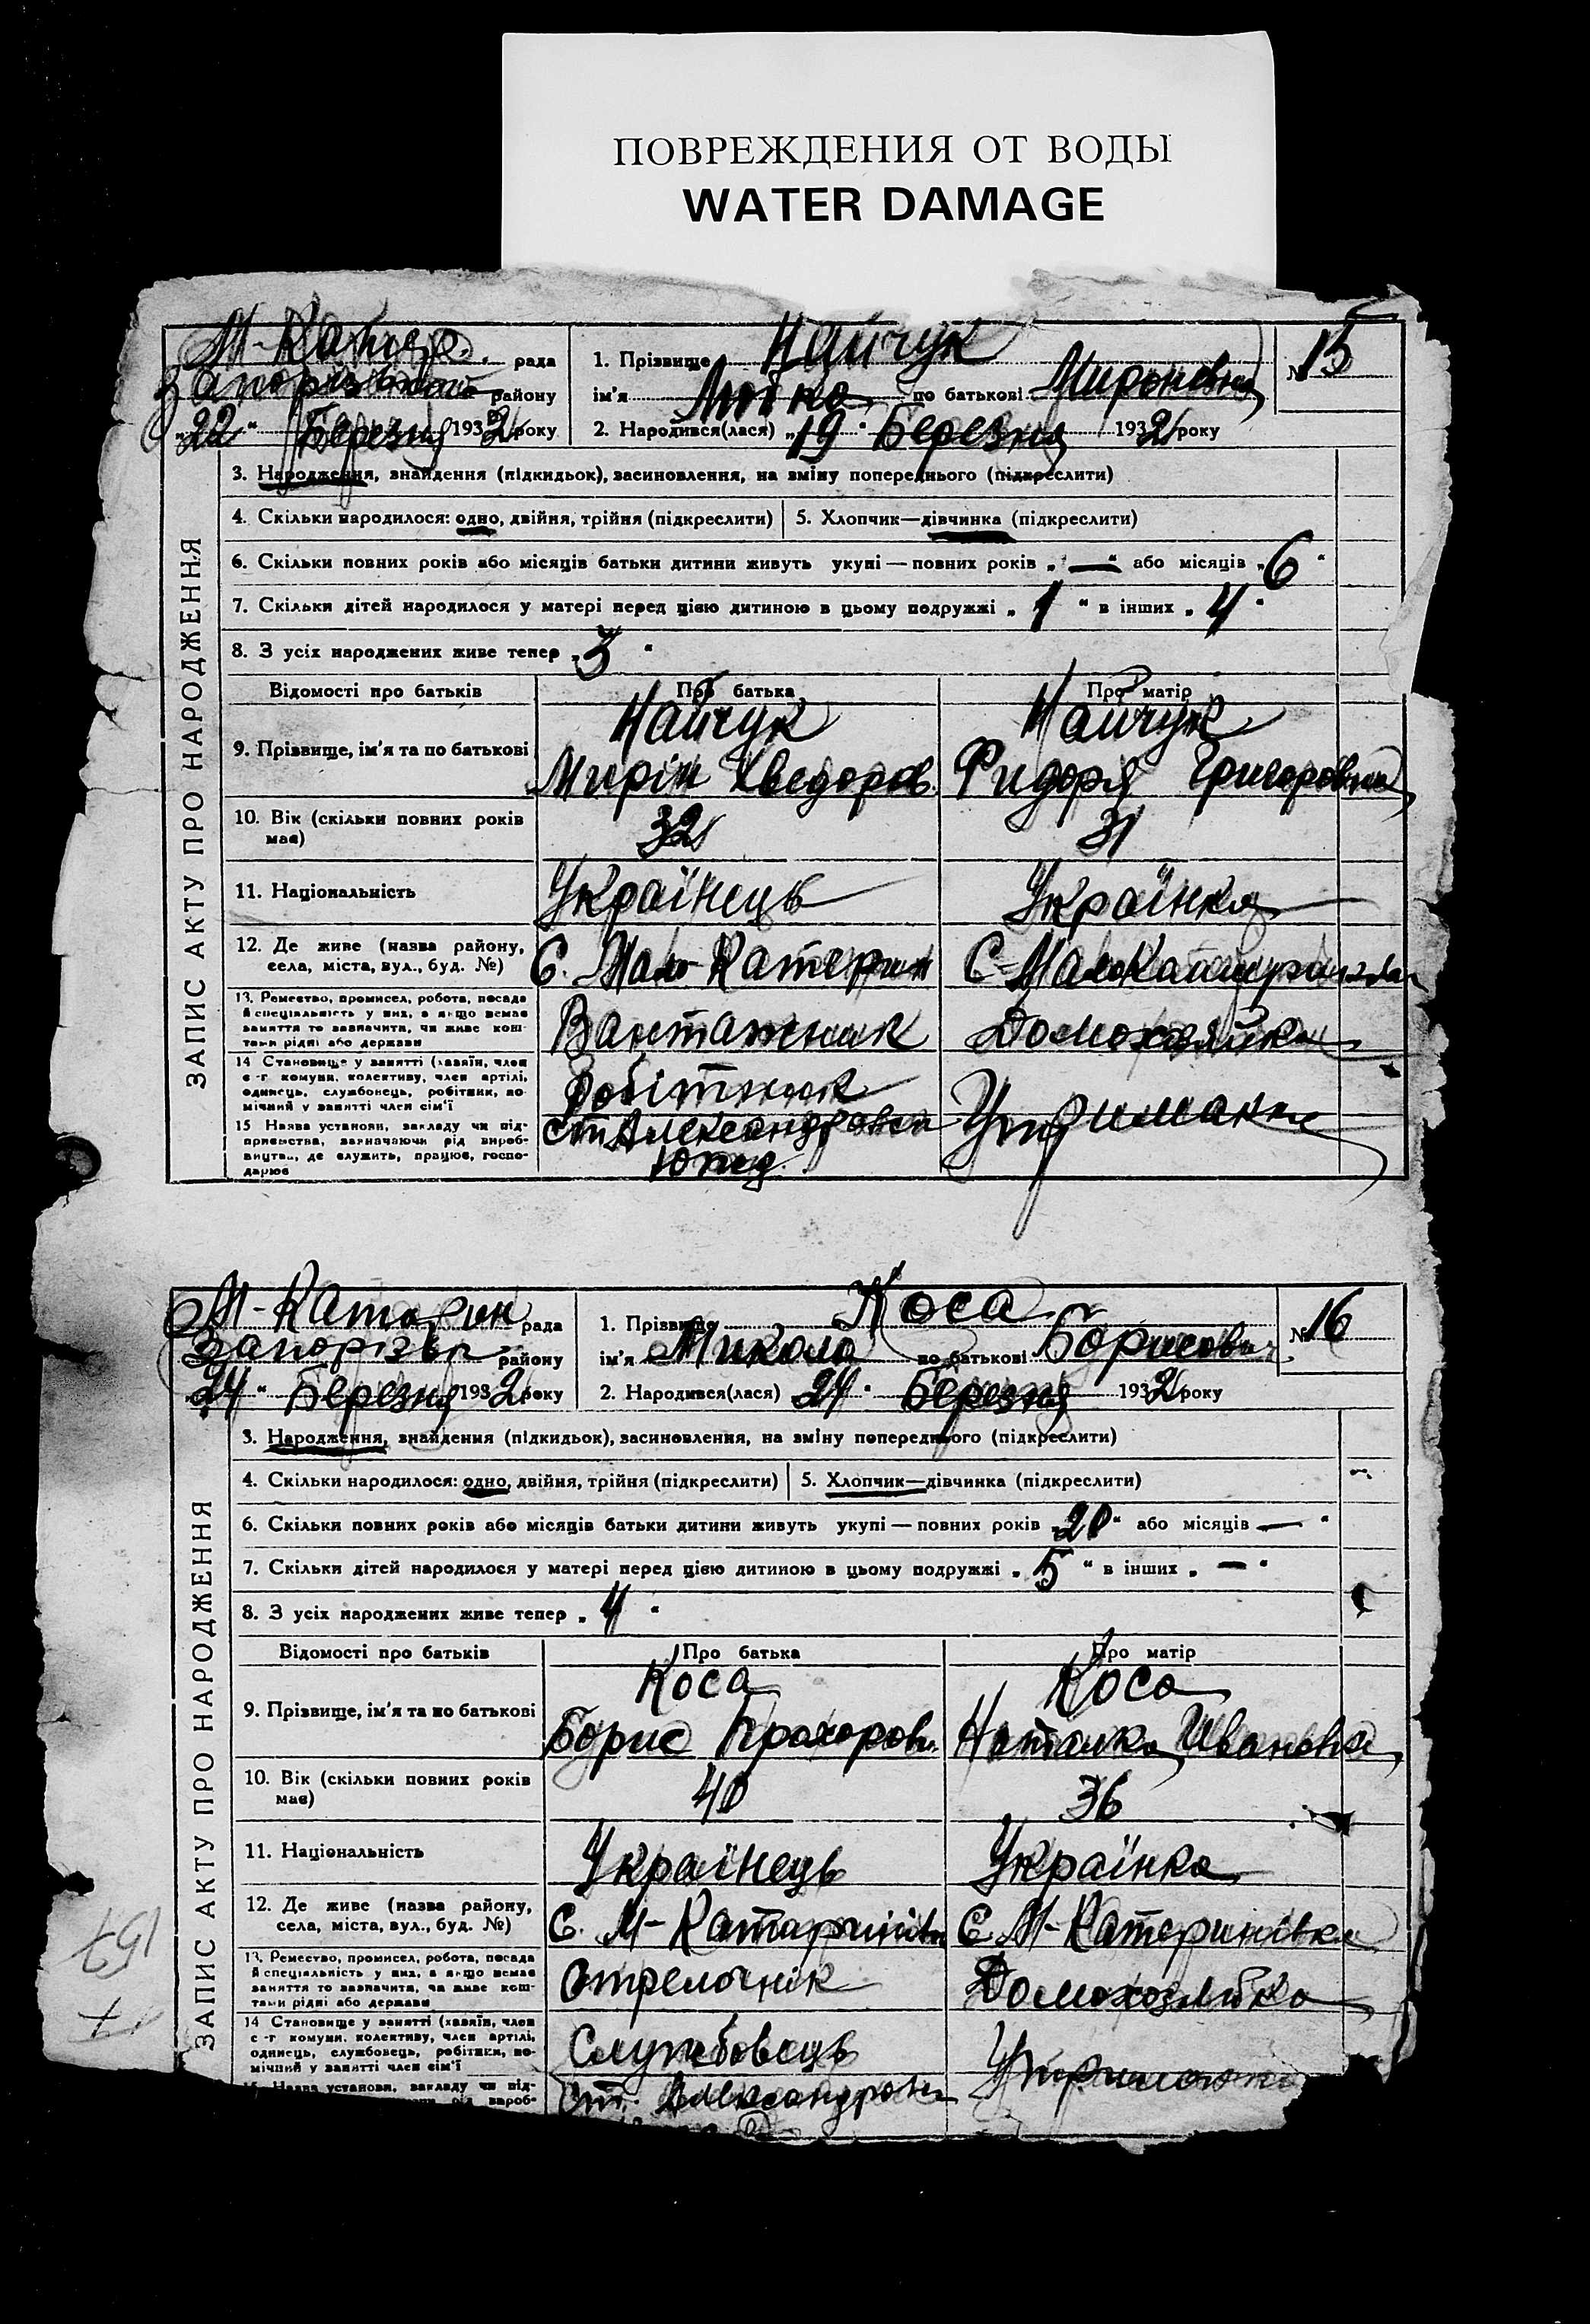 ПОВРЕЖДЕНИЯ ОТ ВОДЫ
WATER DAMAGE
М-Катер. рада
Запорізьк району
"22" Березня 1932 року
1. Прізвище Найчук
ім'я по батькові Миронівна
2. Народився(лася) "19" Березня 1932 року
№ 15
ЗАПИС АКТУ ПРО НАРОДЖЕННЯ
3. Народження, знайдення (підкидьок), засиновлення, на зміну попереднього (підкреслити)
4. Скільки народилося: одно, двійня, трійня (підкреслити)
5. Хлопчик—дівчинка (підкреслити)
6. Скільки повних років або місяців батьки дитини живуть укупі — повних років „—“ або місяців „6“
7. Скільки дітей народилося у матері перед цією дитиною в цьому подружжі „1“ в інших „4“
8. З усіх народжених живе тепер „3“
Відомості про батьків
Про батька
Про матір
9. Прізвище, ім'я та по батькові
Найчук
Мирін Хведоров.
Найчук
Григоровна
10. Вік (скільки повних років
має)
32
31
11. Національність
Українець
Українка
12. Де живе (назва району,
села, міста, вул., буд. №)
С. Мало-Катерин
С-Малокатеринівка
13. Ремество, промисел, робота, посада
й спеціяльність у них, а якщо немає
заняття то зазначити, чи живе кош-
тами рідні або держави
Вантажник
Домохазяйка
14 Становище у занятті (хазяїн, член
с-г комуни, колективу, член артілі,
одинець, службовець, робітник, по-
мічний у занятті член сім'ї
робітник
Утриманка
15 Назва установи, закладу чи під-
приємства, зазначаючи рід вироб-
ництва, де служить, працює, госпо-
дарює
ст Александровск
Юпзд.
М-Катерин рада
Запорізьк району
"24" Березня 1932 року
1. Прізвище Коса
ім'я Микола по батькові Борисович
2. Народився(лася) 24 " Березня 1932 року
№ 16
ЗАПИС АКТУ ПРО НАРОДЖЕННЯ
3. Народження, знайдення (підкидьок), засиновлення, на зміну попереднього (підкреслити)
4. Скільки народилося: одно, двійня, трійня (підкреслити)
5. Хлопчик—дівчинка (підкреслити)
6. Скільки повних років або місяців батьки дитини живуть укупі — повних років „20“ або місяців — “
7. Скільки дітей народилося у матері перед цією дитиною в цьому подружжі „5“ в інших „—“
8. З усіх народжених живе тепер „4“
Відомості про батьків
Про батька
Про матір
9. Прізвище, ім'я та по батькові
Коса
Борис Прохоров.
Коса
Наталка Ивановна
10. Вік (скільки повних років
має)
40
36
11. Національність
Українець
Українка
12. Де живе (назва району,
села, міста, вул., буд. №)
С. М-Катаринівк
С. М-Катеринівка
13. Ремество, промисел, робота, посада
й спеціяльність у них, а якщо немає
заняття то зазначити, чи живе кош-
тами рідні або держави
Стрелочнік
Домохозяйка
14 Становище у занятті (хазяїн, член
с-г комуни, колективу, член артілі,
одинець, службовець, робітник, по-
мічний у занятті член сім'ї
Службовець
15 Назва установи, закладу чи під-
рід вироб-
Ст. Александровск
157